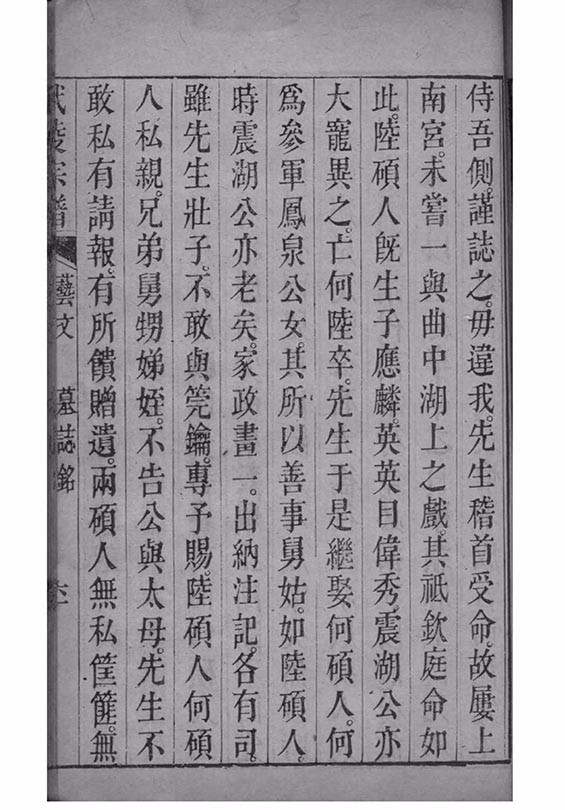 侍吾側。謹誌之。毋違我。先生稽首受命。故屢上
南宮。未嘗一與曲中湖上之戲。其祗欽庭命如
此。陸碩人旣生子應麟。英英目偉秀。震湖公亦
大寵異之。亡何陸卒。先生于是繼娶何碩人。何
爲參軍鳳泉公女。其所以善事舅姑。如陸碩人。
時震湖公亦老矣。家政畫一。出納注記。各有司。
雖先生壯子。不敢與筦鑰。專予賜。陸碩人何碩
人私親。兄弟舅甥娣姪。不告公與太母。先生不
敢私有請報。有所饋贈遺。兩碩人無私筐篚。無
宗譜 藝文 墓誌銘